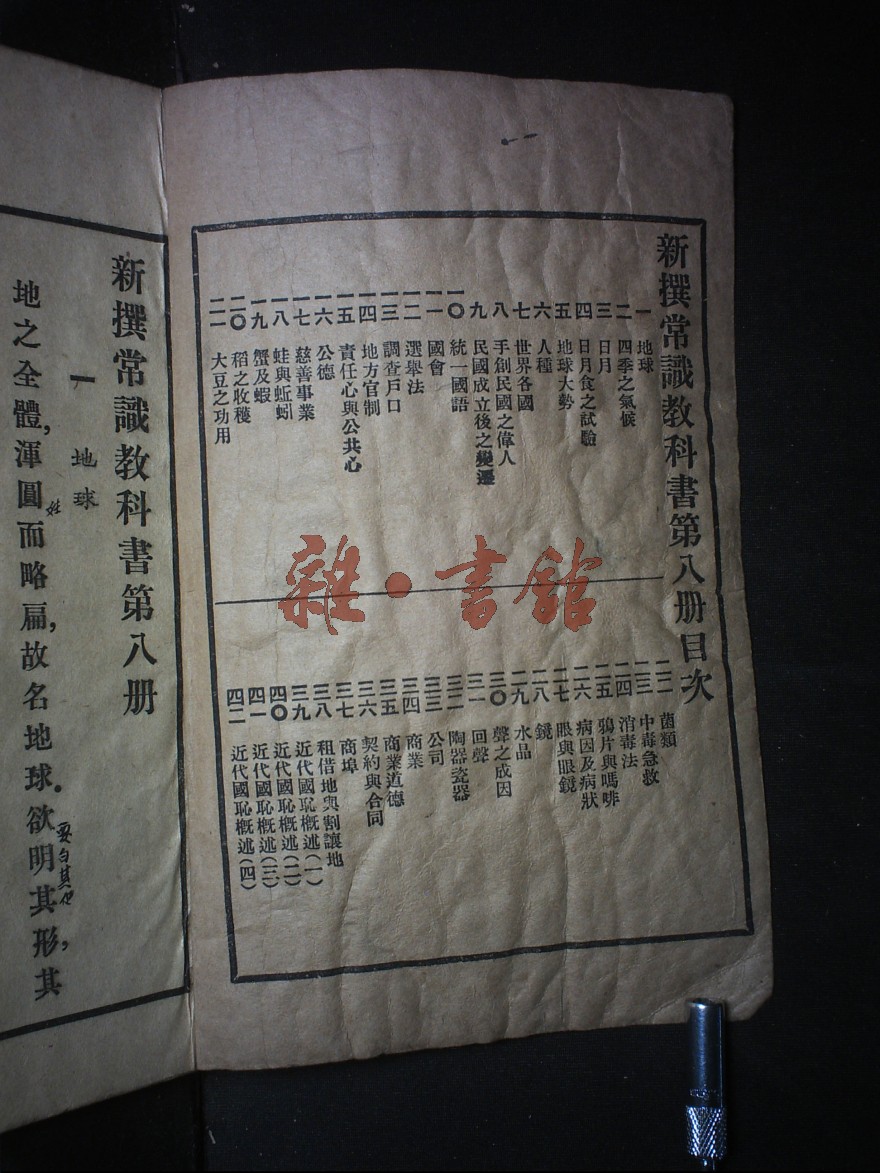 新撰常識教科書第八册目次
一 地球
二 四季之氣候
三 日月
四 日月食之試驗
五 地球大勢
六 人種
七 世界各國
八 手創民國之偉人
九 民國成立後之變遷
一〇 統一國語
一一 國會
一二 選舉法
一三 調查戶口
一四 地方官制
一五 責任心與公共心
一六 公德
一七 慈善事業
一八 蛙與蚯蚓
一九 蟹及蝦
二〇 稻之收穫
二一 大豆之功用
二二 菌類
二三 中毒急救
二四 消毒法
二五 鴉片與嗎啡
二六 病因及病狀
二七 眼與眼鏡
二八 鏡
二九 水晶
三〇 聲之成因
三一 回聲
三二 陶器瓷器
三三 公司
三四 商業
三五 商業道德
三六 契約與合同
三七 商埠
三八 租借地與割讓地
三九 近代國恥概述(一)
四〇 近代國恥概述(二)
四一 近代國恥概述(三)
四二 近代國恥概述(四)
雜·書館
新撰常識教科書第八册
一 地球
地之全體,渾圓而略扁,故名地球。欲明其形,其